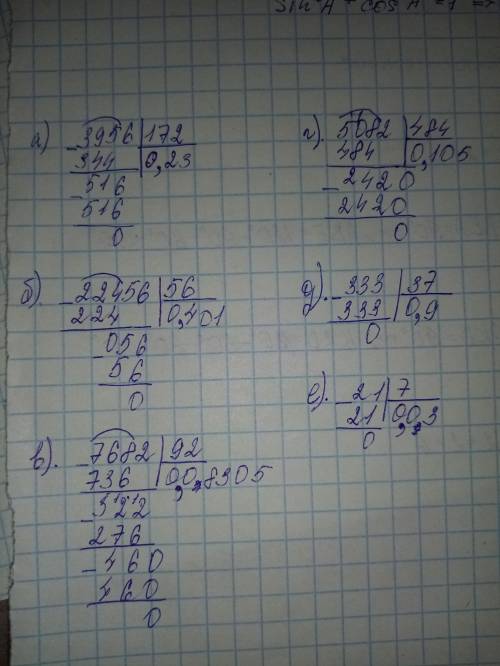 sin²A + cos²A = 1
а) 3956 | 172
344 | 0,23
516
516
0
б). 22456 | 56
224 | 0,401
056
56
0
в). 7682 | 92
736 | 00,8305
322
276
460
460
0
г). 5082 | 484
484 | 0,105
2420
2420
0
д). 333 | 37
333 | 0,9
0
е). 21 | 7
21 | 00,3
0